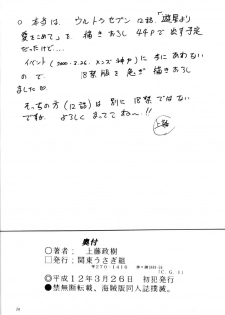 ○ 本当は、ウルトラセブン12話、「遊星より
愛をこめて」を 描きおろし 44Pで 出す予定
だったけど…。
イベント(2000.3.26. メンズ 神戸)に あわない
ので 18禁版を 急ぎ 描きおろし
ました。
そっちの方(12話)は 別に 18禁では ない
ですね。 よろしく まっててね〜!!
奥付
○著者: 上藤政樹
□発行: 関東うさぎ組
〒270-1416
(C.G.1)
◎平成12年3月26日 初犯発行
●禁無断転載、海賊版同人誌撲滅。